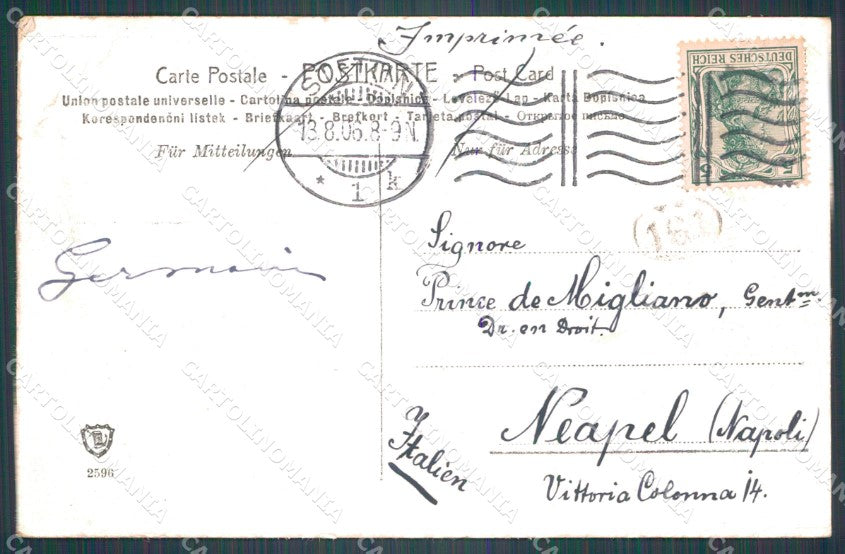 Imprimée.
Carte Postale - POSTKARTE - Post Card
Union postale universelle - Cartolina postale - Dopisnica - Levelező-Lap - Karta Dopisnica
Korespondenční listek - Briefkaart - Brefkort - Tarjeta postal - Открытое письмо
Für Mitteilungen Nur für Adresse
DEUTSCHES REICH
13.8.06.8-9N.
* 1 k
Signore
Prince de Migliano, Gentm.
Dr. en Droit.
Germain
Neapel (Napoli)
Italien
Vittoria Colonna 14.
2596
CARTOLINOMANIA